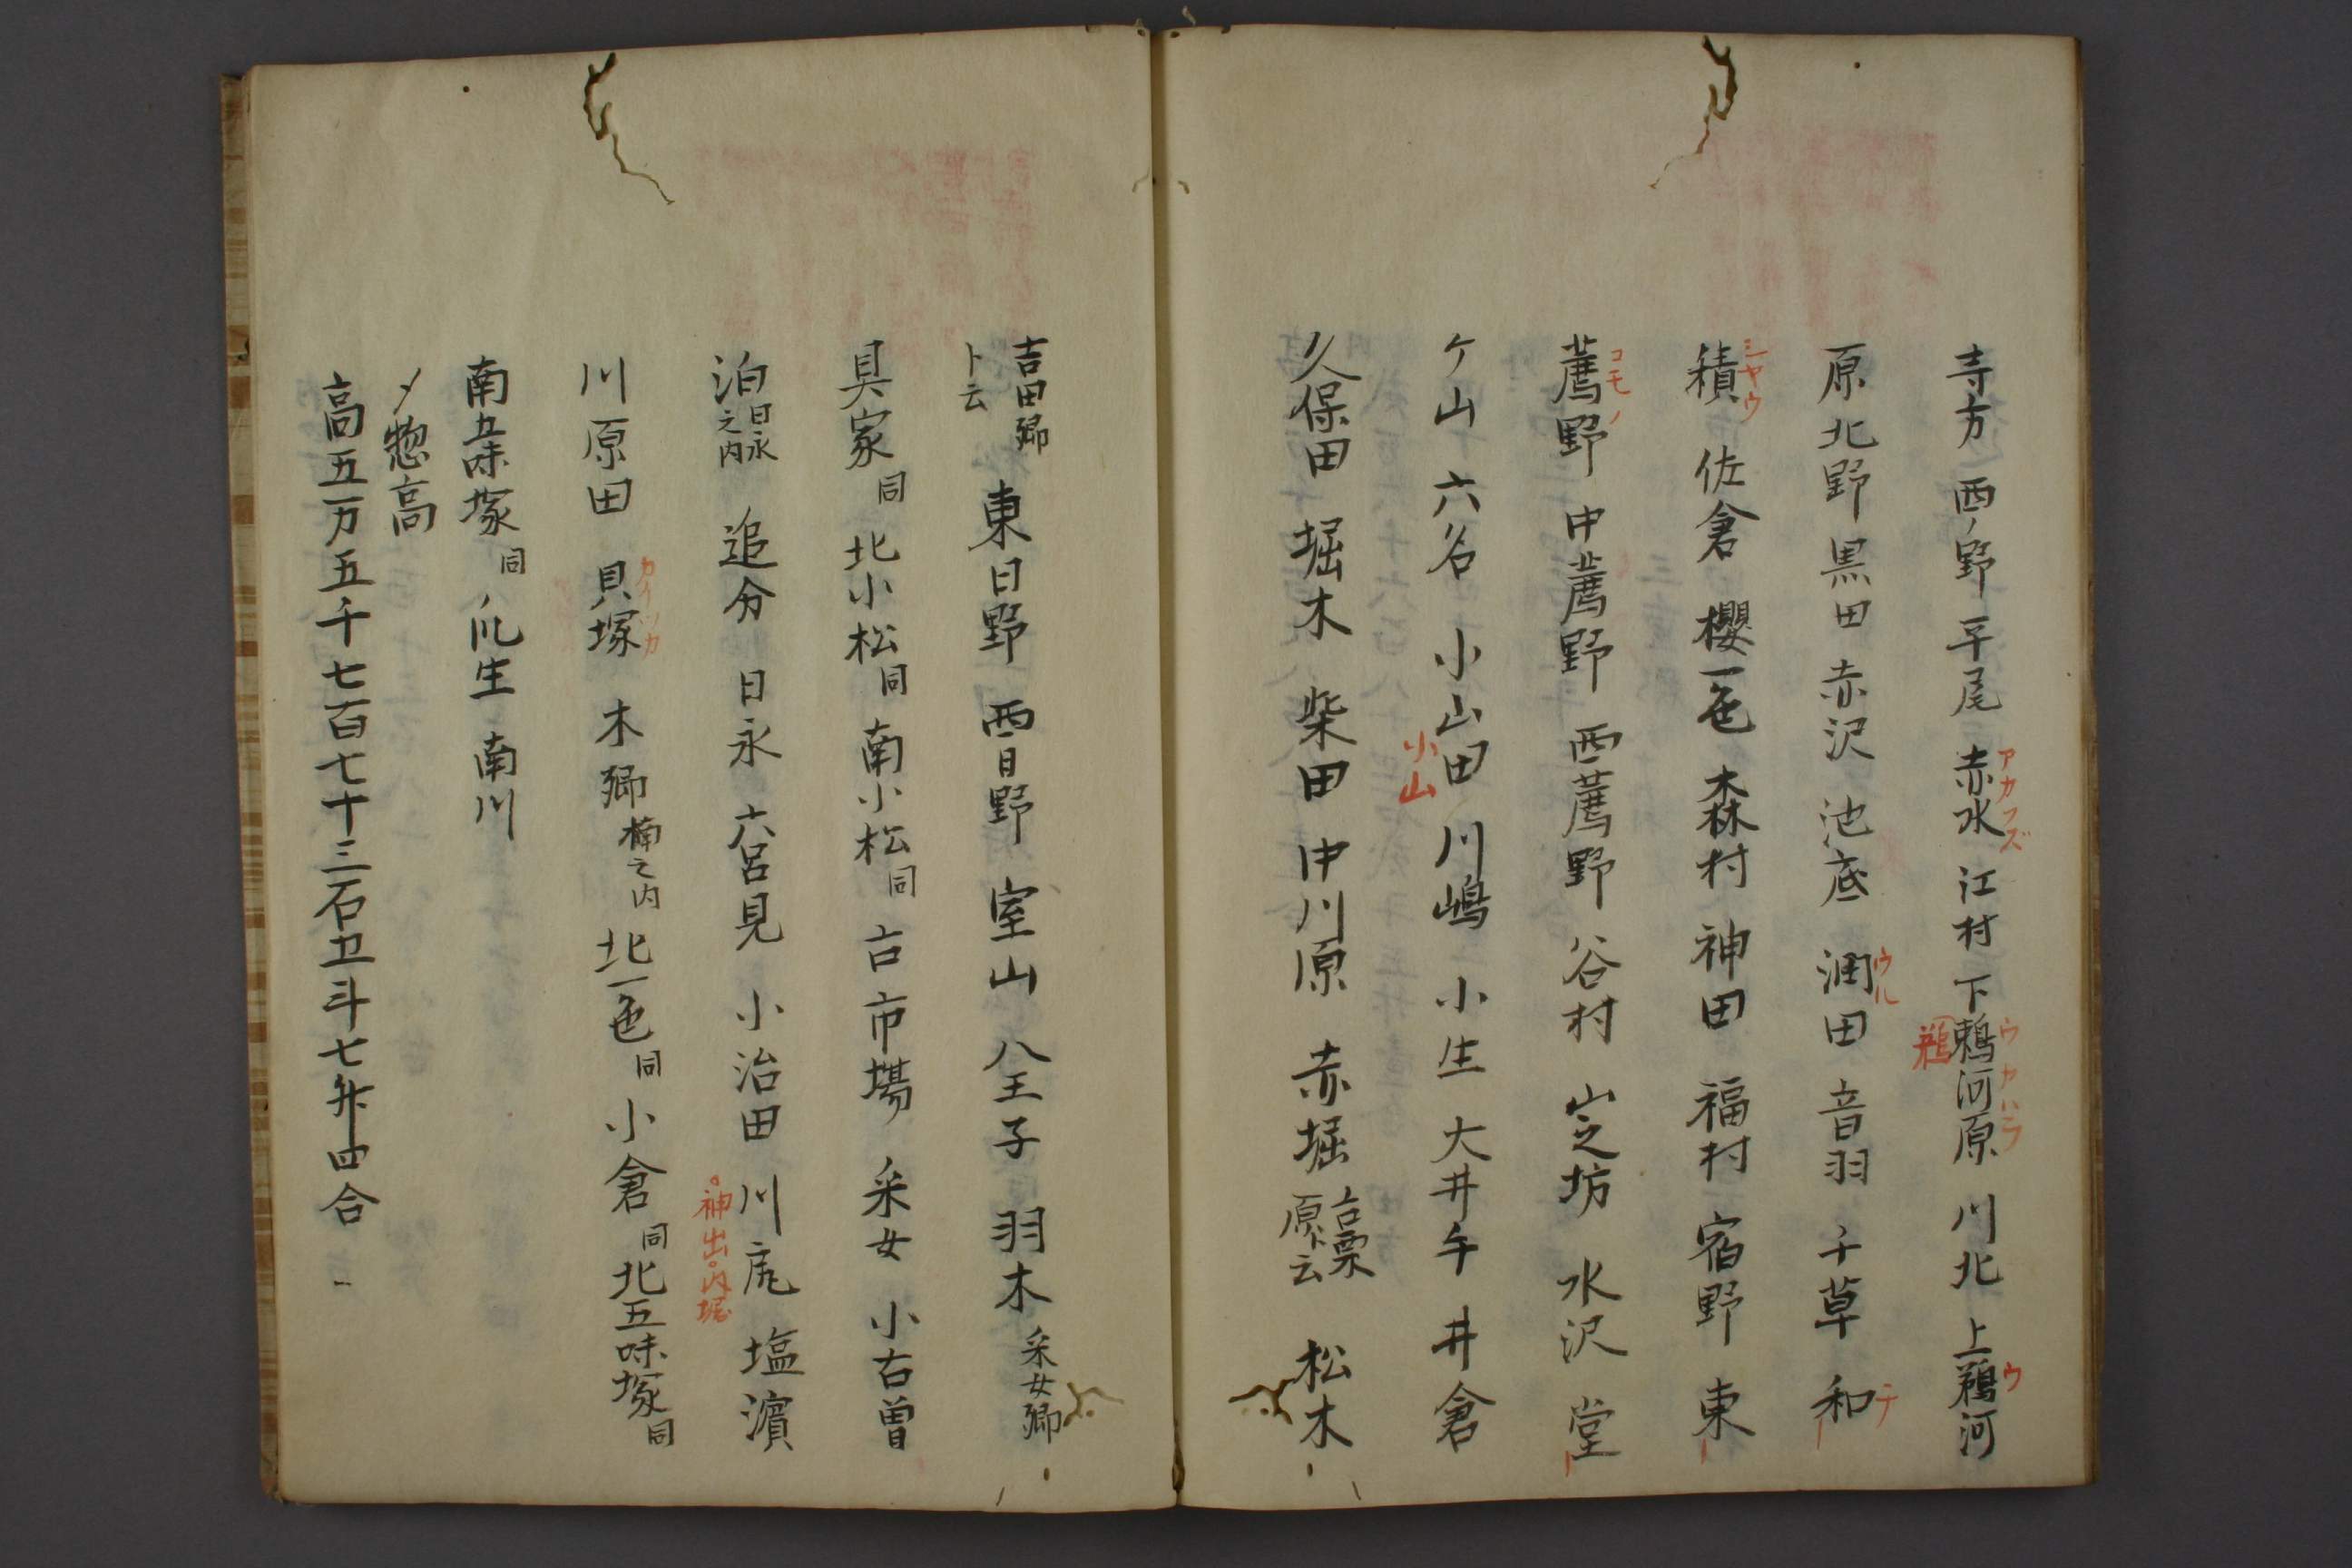 寺方 西ノ野 平尾 赤水 江村 下鵜河原 川北 上鵜河
アカフズ
ウカハラ
鵜
ウ
原 北野 黒田 赤沢 池底 潤田 音羽 千草 和
ウル
チ
積 佐倉 櫻一色 森村 神田 福村 宿野 東
シヤウ
薦野 中薦野 西薦野 谷村 山之坊 水沢 堂
コモノ
ケ山 六名 小山田 川嶋 小生 大井手 井倉
小山
久保田 堀木 柴田 中川原 赤堀 古栗原ト云 松木
東日野 西日野 室山 八王子 羽木 采女郷
吉田郷ト云
貝家 同 北小松 同 南小松 同 古市場 采女 小古曽
泊 日永之内 追分 日永 六呂見 小治田 川尻 塩濱
神出 内堀
川原田 貝塚 木郷 楠之内 北一色 同 小倉 同 北五味塚 同
カイツカ
南五味塚 同 瓜生 南川
〆惣高
高五万五千七百七十三石五斗七升四合